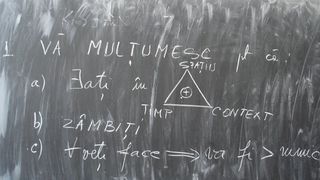 1 VĂ MULȚUMESC pt că:
SPAȚIU
a) ∃ați în
TIMP CONTEXT
b) ZÂMBIȚI
c) ∀ veți face ⟹ va fi >